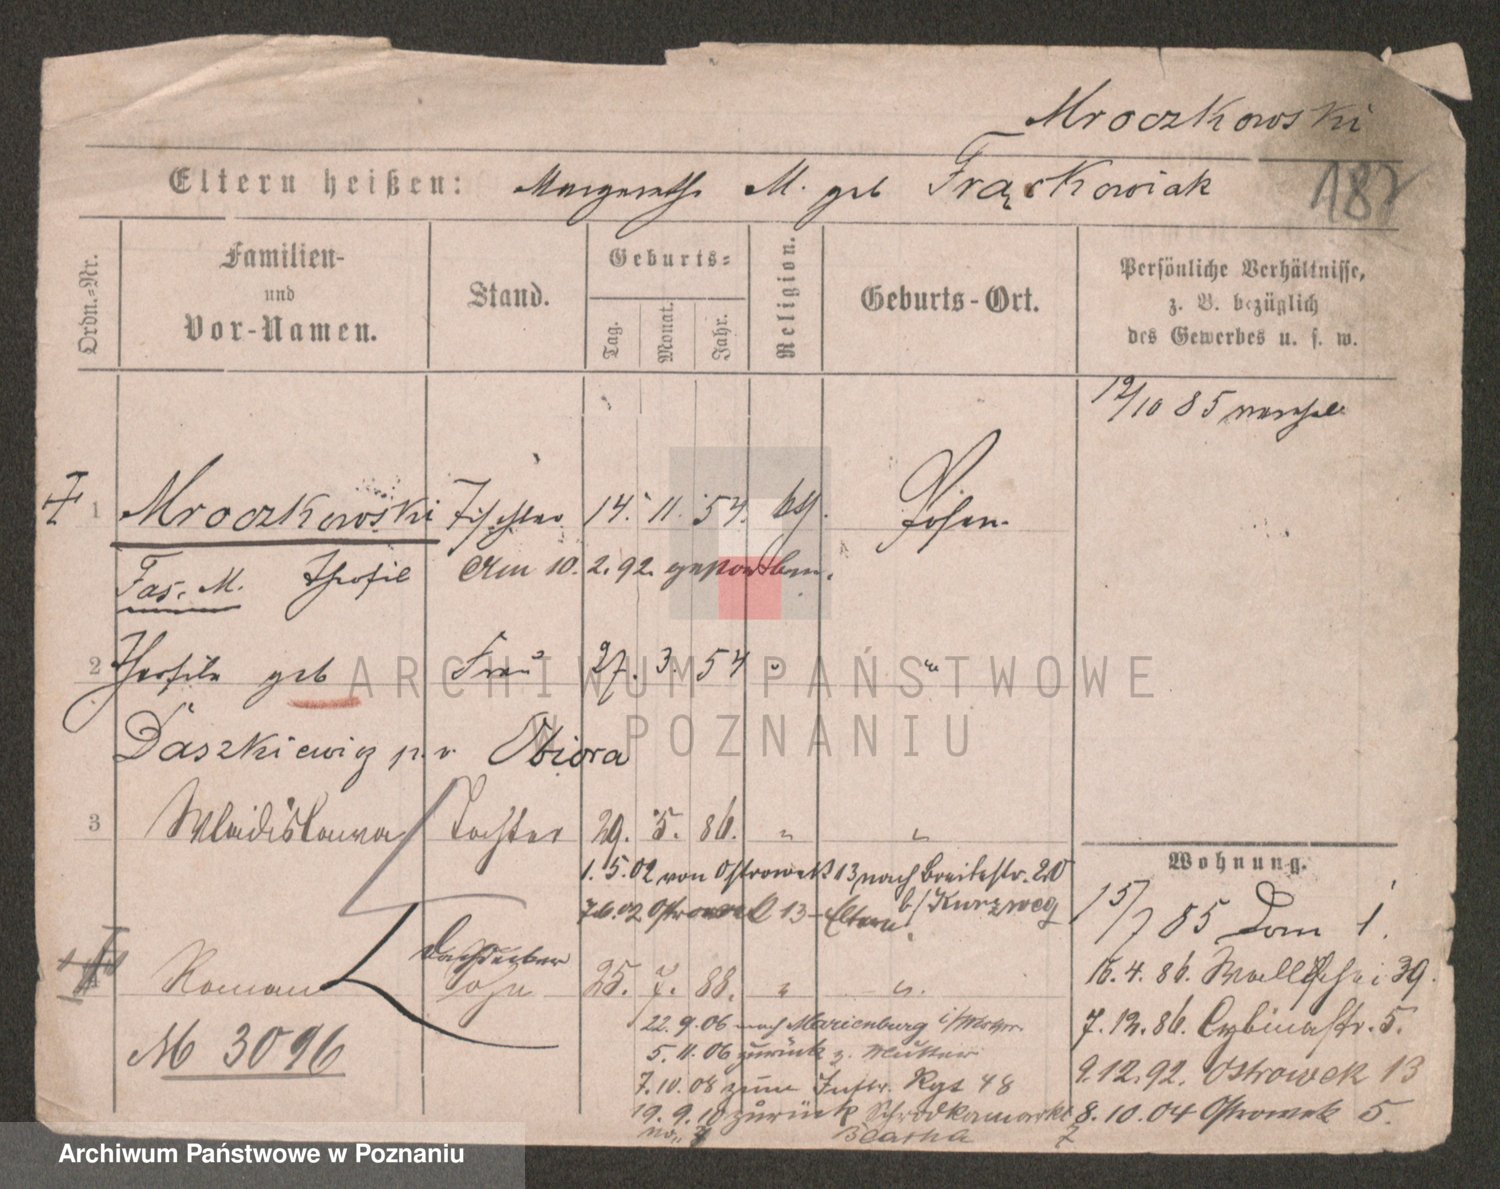 Mroczkowski
Eltern heißen: Margarethe M. geb Frąckowiak
187
Ordn.-Nr.
Familien-
und
Vor-Namen.
Stand.
Geburts-
Tag.
Monat.
Jahr.
Religion.
Geburts-Ort.
Persönliche Verhältnisse,
z. B. bezüglich
des Gewerbes u. s. w.
12/10 85
1 Mroczkowski Tischler 14. 11. 54. kth. Posen.
Fas. M. Theofil Am 10. 2. 92. gestorben.
2 Theofila geb Frau 27. 3. 54 " "
Daszkiewicz p. v. Obiora
3 Wladislawa Tochter 29. 5. 86. " "
1. 5. 02 von Ostrowek 13 nach Breitestr. 20
b/ Kurzweg
7.6.02 Ostrowek 13 - Eltern.
Dachdecker
4 Roman Sohn 25. 7. 88. " "
M 3096
22. 9. 06 nach Marienburg i/Wstpr.
5. 11. 06 zurück z. Mutter
7. 10. 08 zum Inftr. Rgt 48
19. 9. 10 zurück Schrodkamarkt
7
Wohnung.
15/7 85 Dom 1.
16. 4. 86. Wallischei 39.
7. 12. 86. Cybinastr. 5.
9. 12. 92. Ostrowek 13
8. 10. 04 Ostrowek 5.
ARCHIWUM PAŃSTWOWE
W POZNANIU
Archiwum Państwowe w Poznaniu